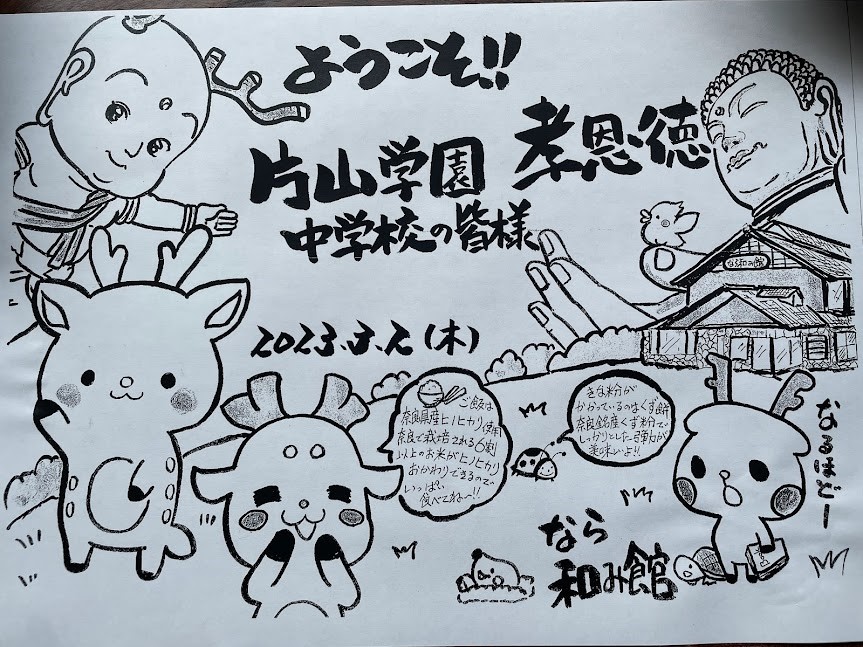 ようこそ!!
孝恩徳
片山学園
中学校の皆様
2023.3.2(木)
なら和み館
ご飯は
奈良県産ヒノヒカリ使用
奈良で栽培される6割
以上のお米がヒノヒカリ
おかわりできるので
いっぱい
食べてね〜!!
きな粉が
かかっているのはくず餅
奈良銘産くず粉で
しっかりとした弾力が
美味いよ!!
なるほどー
なら
和み館